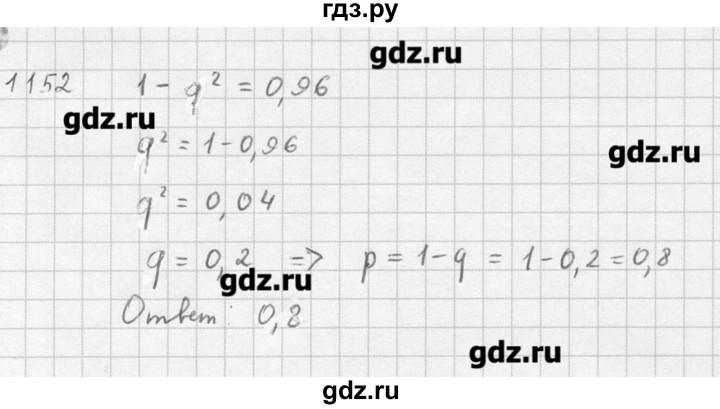 гдз.ру
gdz.ru
1152 1 - q² = 0,96
gdz.ru
q² = 1 - 0,96
gdz.ru
q² = 0,04
q = 0,2 => p = 1 - q = 1 - 0,2 = 0,8
gdz.ru
Ответ: 0,8
gdz.ru
gdz.ru